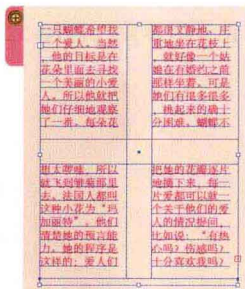 一只蝴蝶希望找
一个爱人。当然
，他的目标是在
花朵里面去寻找
一个美丽的小爱
人。所以他就把
她们仔细地观察
了一番。每朵花
都很文静地、庄
重地坐在花枝上
，就好像一个姑
娘在有婚约之前
那样坐着。可是
她们有很多很多
，挑起来的确十
分困难。蝴蝶不
想太啰嗦，所以
就飞到雏菊那里
去。法国人都叫
这种小花为“玛
加丽特”。他们
清楚她的预言能
力。她的程序是
这样的：爱人们
把她的花瓣逐片
地摘下来，每一
片爱都可以就一
个关于他们的爱
人的情况提问，
比如说：“有热
心吗？伤感吗？
十分喜欢我吗？